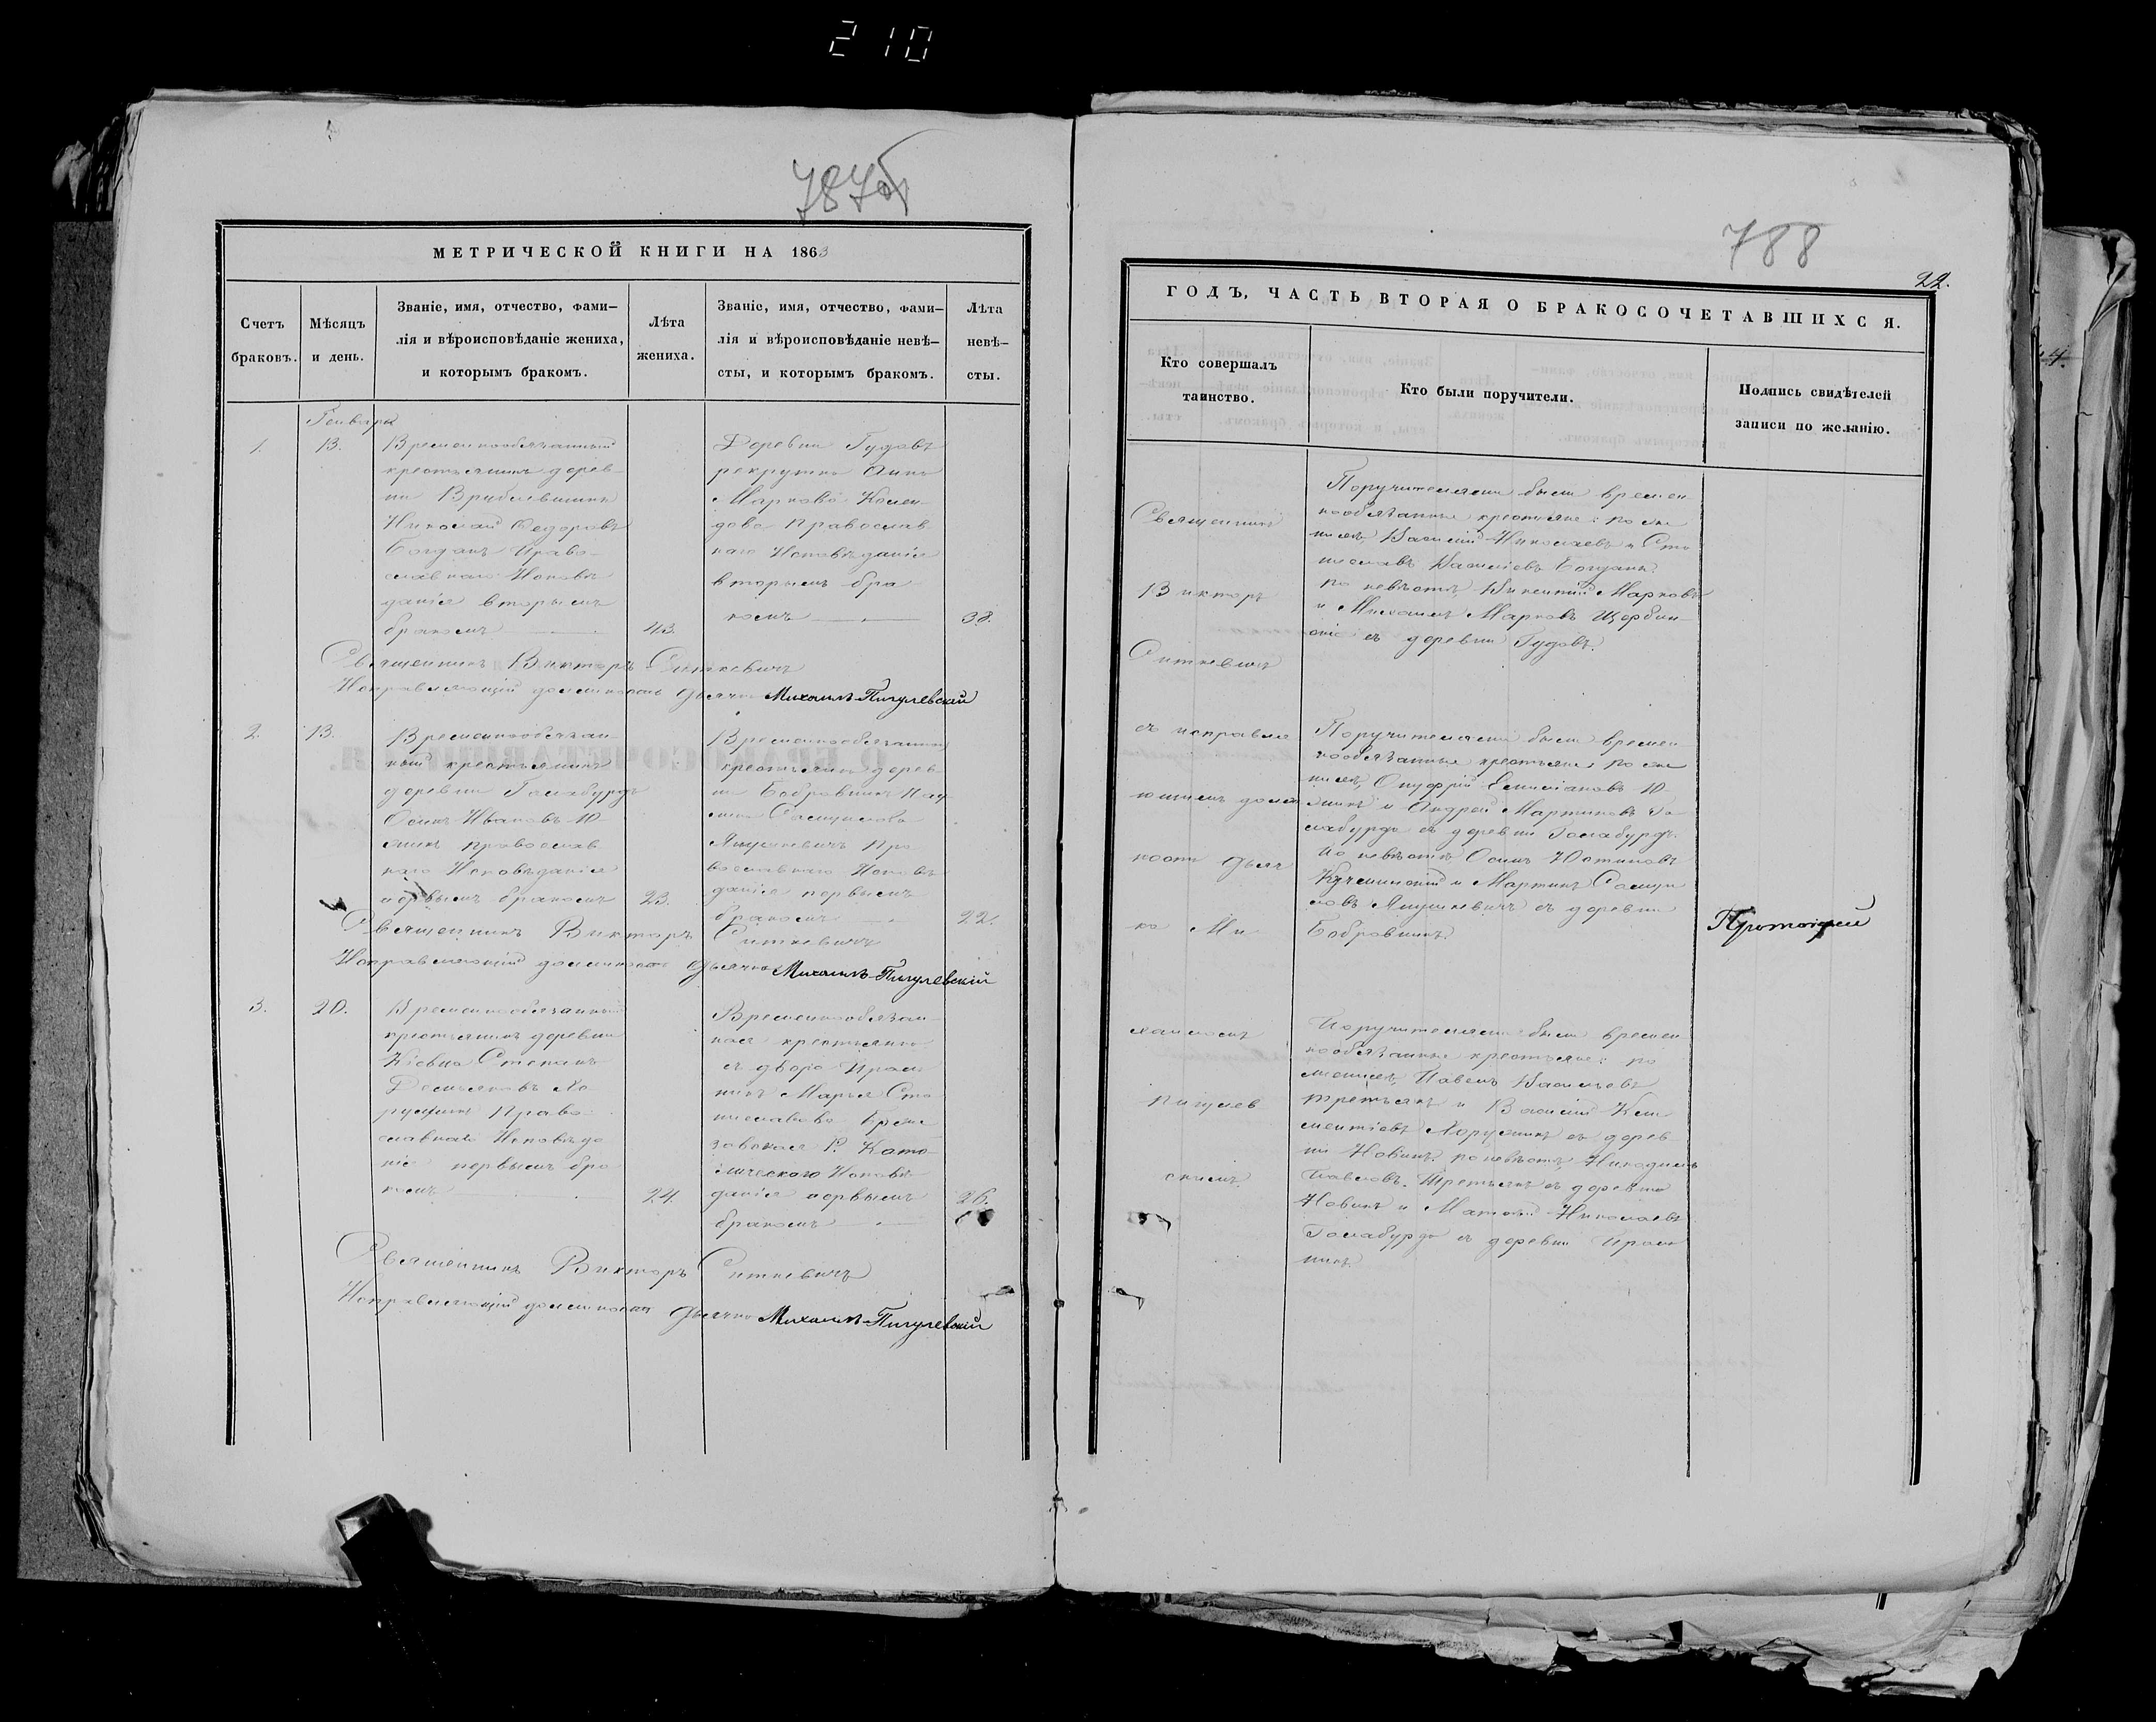 210
787об
МЕТРИЧЕСКОЙ КНИГИ НА 1863
Счетъ браковъ.
Мѣсяцъ и день.
Званіе, имя, отчество, фами-
лія и вѣроисповѣданіе жениха,
и которымъ бракомъ.
Лѣта жениха.
Званіе, имя, отчество, фами-
лія и вѣроисповѣданіе невѣ-
сты, и которымъ бракомъ.
Лѣта
невѣ-
сты.
Генваря
1.
13.
Временнообязанный
крестьянинъ дерев-
ни
Николай Федоровъ
Богданъ Право-
славнаго Исповѣ
данія вторымъ
бракомъ
43.
Деревни Гудовъ
рекрутка Анна
Маркова
Православ
наго Исповѣданія
вторымъ бра
комъ
38.
Священникъ Викторъ Ситкевичъ
Исправляющій должность дьячка Михаилъ Пигулевскій
2.
13.
Временнообязан-
ный крестьянинъ
деревни Голабурдъ
Осипъ Ивановъ Ю-
православ
наго Исповѣданія
первымъ бракомъ
23.
Временнообязанная
крестьянка дерев
ни Бобровникъ
Самуилова
Янушкевичъ Пра
вославнаго Исповѣ
данія первымъ
бракомъ
22.
Священникъ Викторъ Ситкевичъ
Исправляющій должность дьячка Михаилъ Пигулевскій
3.
20.
Временнообязанный
крестьянинъ деревни
Степанъ
Демьяновъ Хо-
Право-
славнаго Исповѣда
нія первымъ бра
комъ
24
Временнообязан-
ная крестьянка
съ двора
Марья Ста
ниславова
Р. Като
лическаго Исповѣ
данія первымъ
бракомъ
26.
Священникъ Викторъ Ситкевичъ
Исправляющій должность дьячка Михаилъ Пигулевскій
788
22.
ГОДЪ, ЧАСТЬ ВТОРАЯ О БРАКОСОЧЕТАВШИХСЯ.
Кто совершалъ
таинство.
Кто были поручители.
Подпись свидѣтелей
записи по желанію.
Священникъ
Викторъ
Ситкевичъ
съ исправля
ющимъ долж
ность дьяч
ка Ми
хаиломъ
Пигулев
скимъ.
Поручителями были времен
нообязанные крестьяне: по же
нихѣ, Василій Николаевъ и Ста
ниславъ Василіевъ Богданы.
по невѣстѣ, Викентій Марковъ
и Михаилъ Марковъ Щербин-
скіе съ деревни Гудовъ.
Поручителями были времен
нообязанные крестьяне: по же
нихѣ, Онуфрій Емиліановъ Ю-
и Андрей Мартиновъ Го-
лабурда съ деревни Голабурдъ.
По невѣстѣ Осипъ Юстиновъ
и Мартинъ Самуи
ловъ Янушкевичъ съ деревни
Бобровникъ.
Протоіерей
Поручителями были времен
нообязанные крестьяне: по
женихѣ, Павелъ Васильевъ
Третьякъ и Василій Кли
ментіевъ съ дерев
ни Новикъ. по невѣстѣ, Никодимъ
Павловъ Третьякъ съ деревни
Новикъ и Матвѣй Николаевъ
Голабурда съ деревни